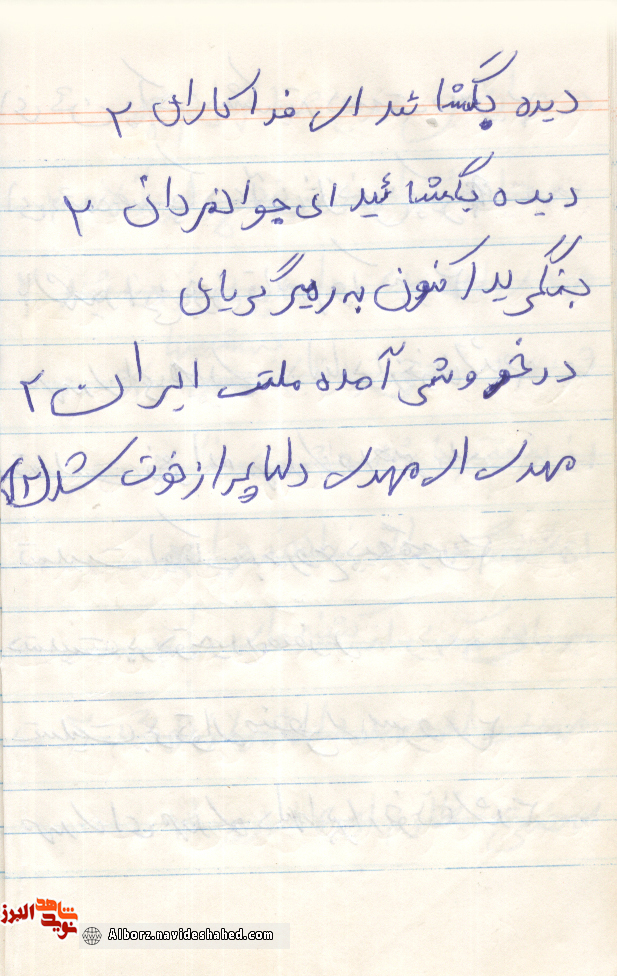 دیده بگشائید ای فداکاران ۲
دیده بگشائید ای جوانمردان ۲
بنگرید اکنون به رهبر گریان
در خروش آمده ملت ایران ۲
مهدی ای مهدی دلها پر از خون شد (۲)
نوید شاهد البرز
Alborz.navideshahed.com